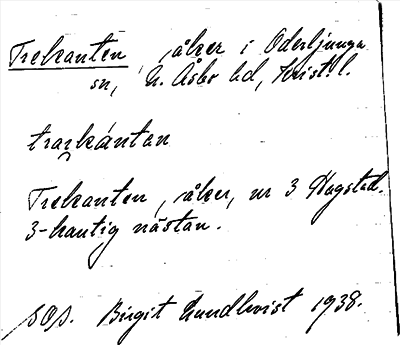 Trekanten, åker i Oderljunga
sn, N. Åsbo hd, Krist. l.
trarkántan
Trekanten, åker, nr 3 Hagstad.
3-kantig nästan.
sOp. Birgit Lundkvist 1938.